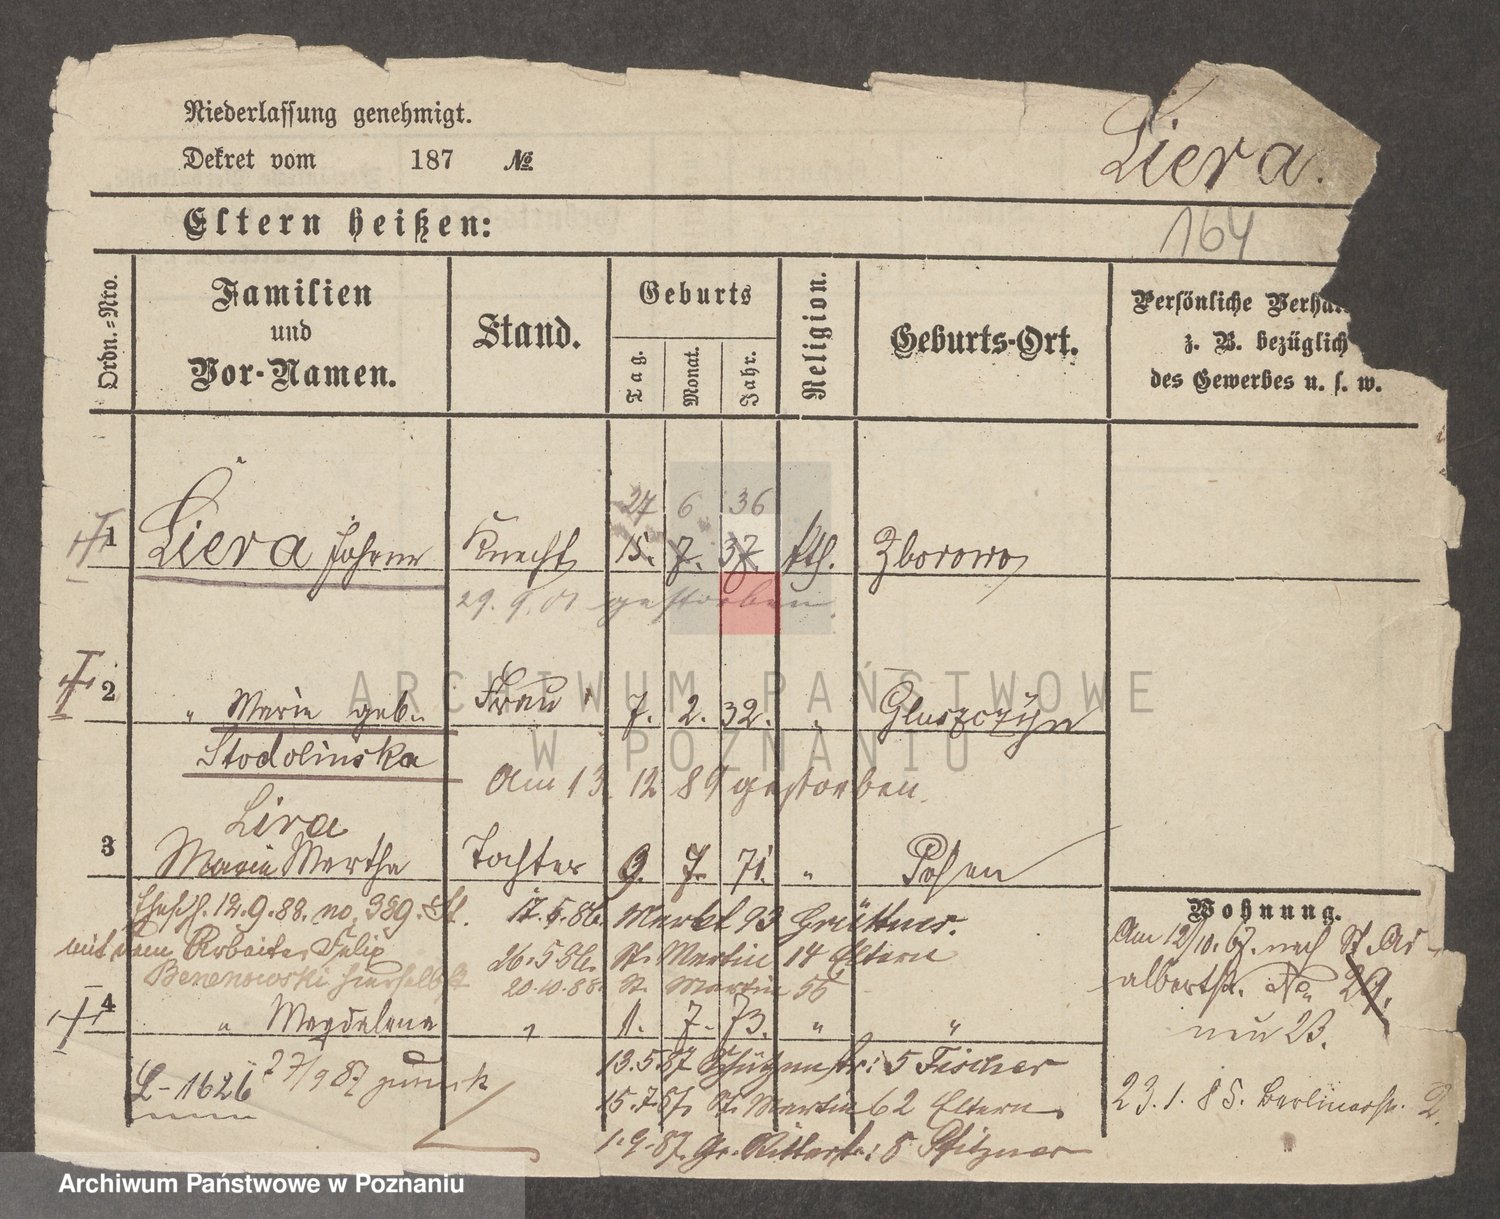 Niederlassung genehmigt.
Liera.
Dekret vom 187 No
Eltern heißen:
164
Ordn.-Nro.
Familien
und
Vor-Namen.
Stand.
Geburts
Tag.
Monat.
Jahr.
Religion.
Geburts-Ort.
Persönliche Verhäl
z. B. bezüglich
des Gewerbes u. s. w.
27 6 36
1 Liera Johann Knecht 15. 7. 37. kth. Zborowo
29. 9. 01 gestorben.
ARCHIWUM PAŃSTWOWE
W POZNANIU
2 " Marie geb. Frau 7. 2. 32. "
Stodolinska
Am 13 12 89 gestorben.
Lira
3 Marie Martha Tochter 9. 7. 71. " Posen
Wohnung.
12.9.88. no. 389. St. 17.5.86. Markt 93 Grüttner.
mit dem Arbeiter Felix 26.5.86. St. Martin 14 Eltern
hierselbst 20.10.88. St. Martin 55
Am 12/10.67. nach St. Ad
albertstr. No 29.
neu 23.
4 " Magdalena " 1. 7. 73. " "
13.5.87 Schützenstr: 5 Fischer
L-1626 27/9 87 zurück
15.7.87. St. Martin 62 Eltern
23.1.85. Berlinerstr. 2.
1.9.87. Gr. Ritterstr: 8 Pfitzner
Archiwum Państwowe w Poznaniu